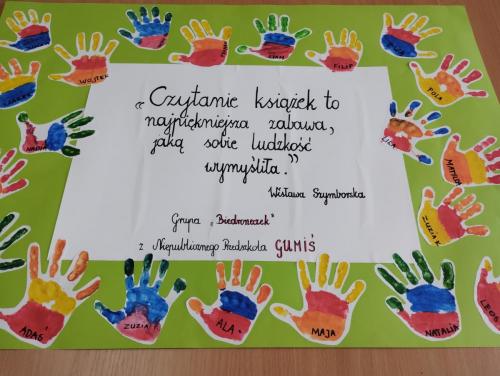 „Czytanie książek to
najpiękniejsza zabawa,
jaką sobie ludzkość
wymyśliła.”
Wisława Szymborska
Grupa „Biedroneczek”
z Niepublicznego Przedszkola GUMIŚ
WOJTEK
FILIP
POLA
LILA
MATYLDA
ZUZIA K
ADAŚ
ZUZIA
ALA
MAJA
NATALIA
LEOŚ